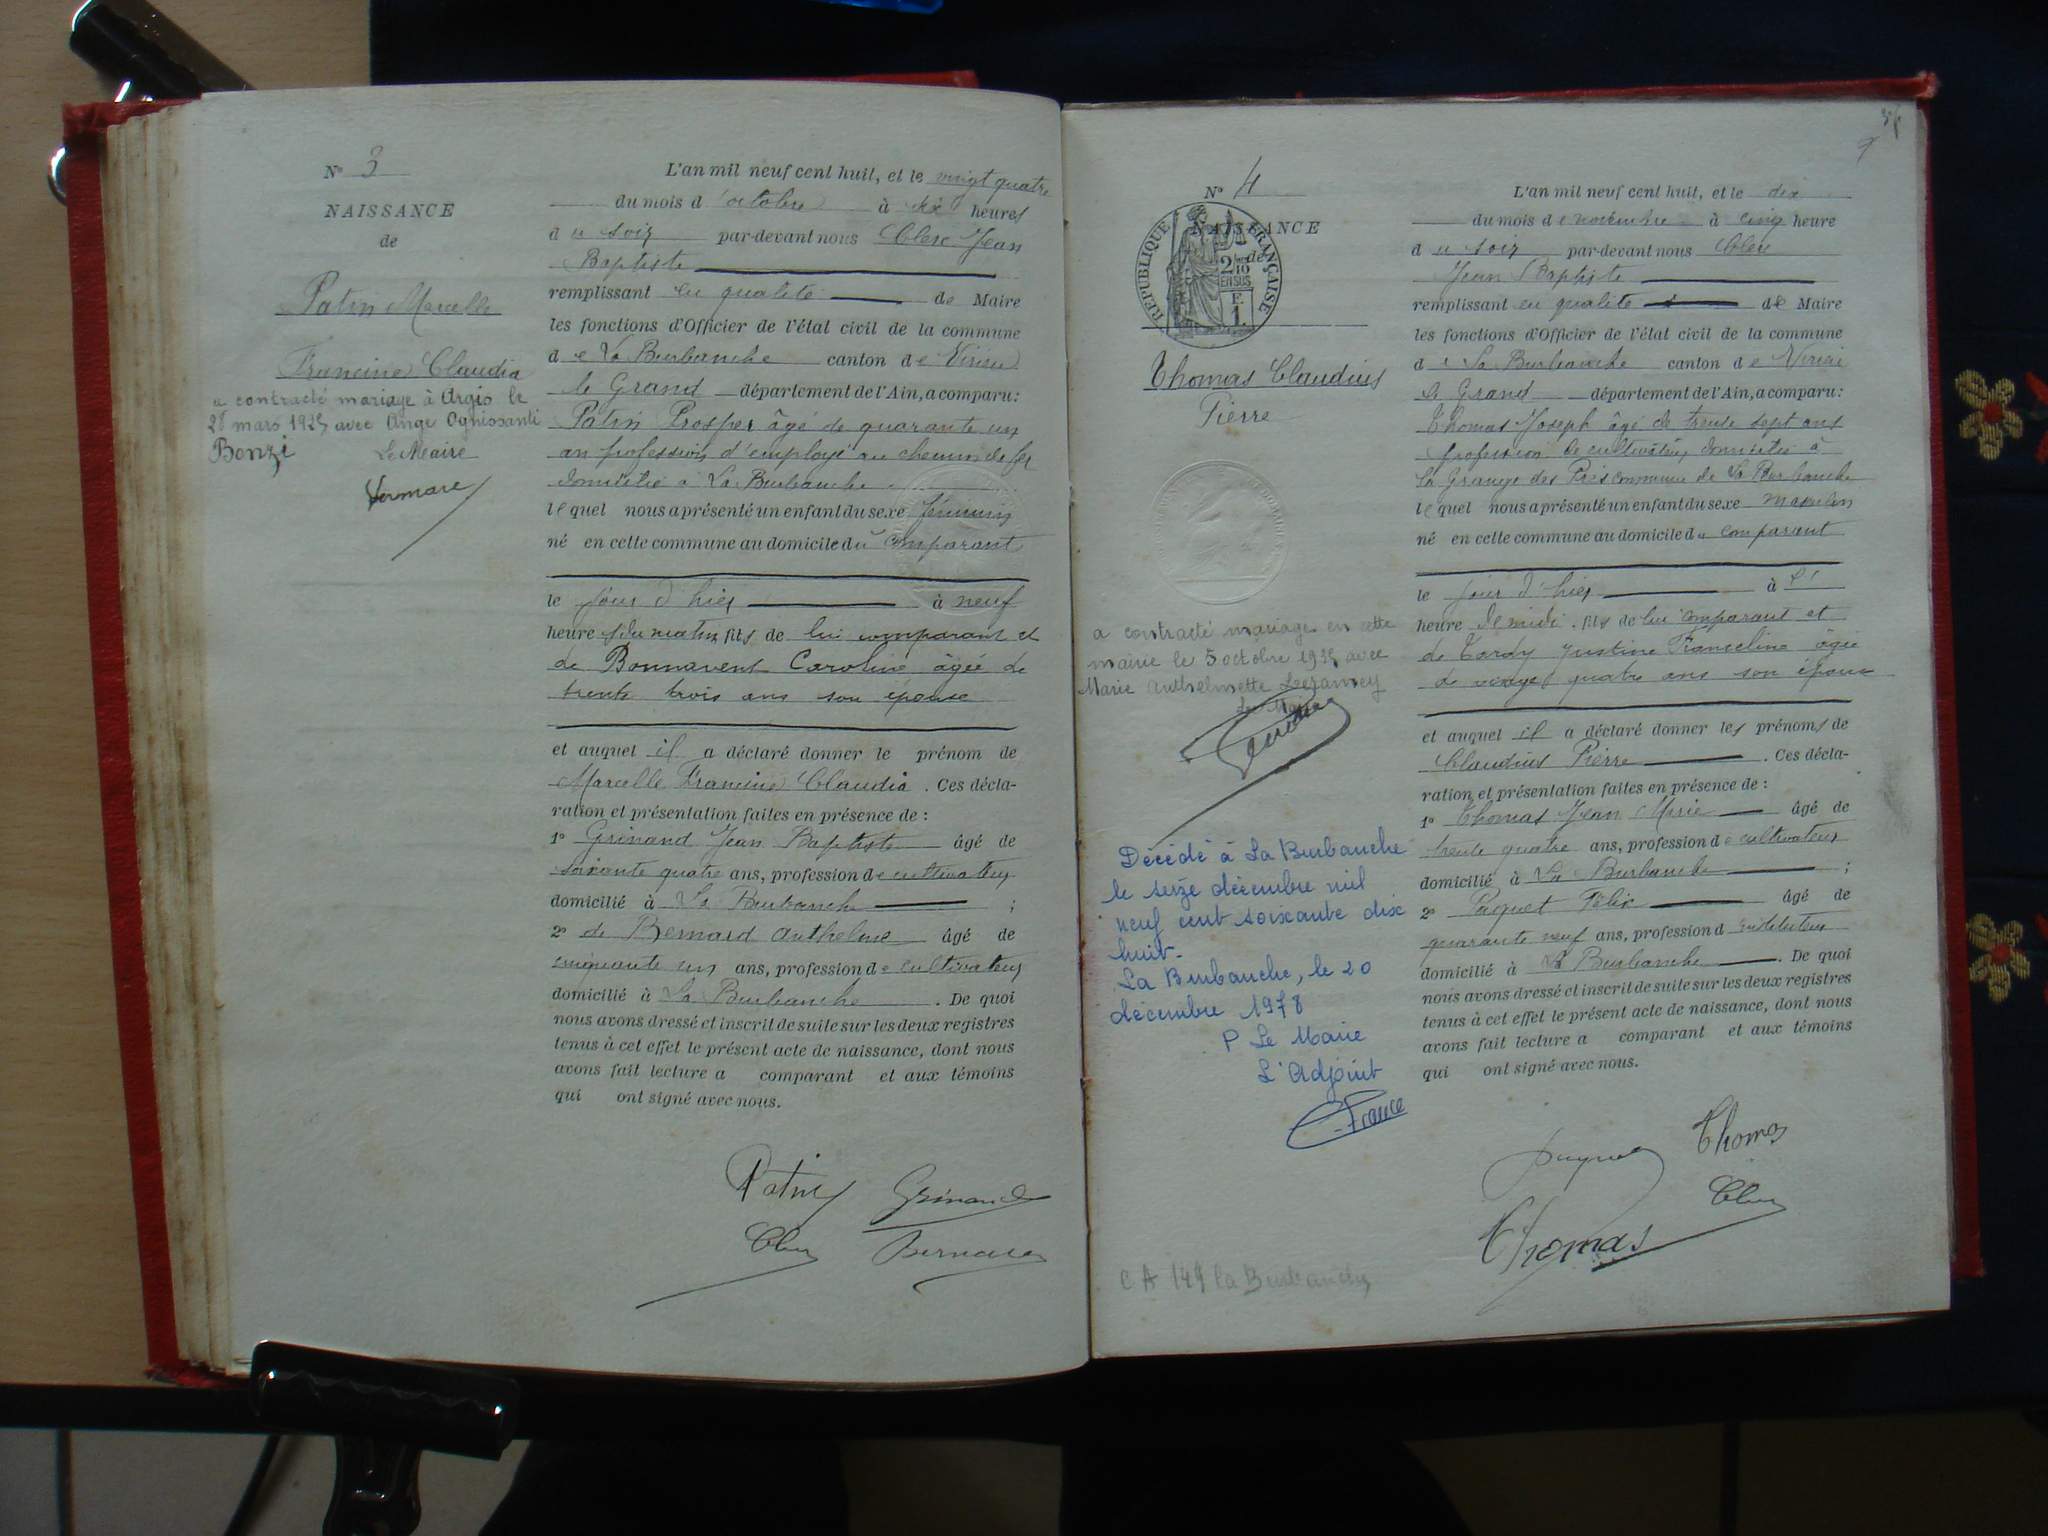 N° 3
NAISSANCE
de
Patin Marcelle
Francine Claudia
a contracté mariage à Argis le
28 mars 1925 avec Ange Ognissanti
Bonzi Le Maire
Vermare
L'an mil neuf cent huit, et le vingt quatre
du mois d'octobre à dix heures
du soir par-devant nous Clerc Jean
Baptiste
remplissant en qualité de Maire
les fonctions d'Officier de l'état civil de la commune
de La Burbanche canton de Virieu
le Grand département de l'Ain, a comparu:
Patin Prosper âgé de quarante un
an profession d'employé au chemin de fer
domicilié à La Burbanche
lequel nous a présenté un enfant du sexe féminin
né en cette commune au domicile du comparant
le jour d'hier à neuf
heures du matin fils de lui comparant et
de Bonnavent Caroline âgée de
trente trois ans son épouse
et auquel il a déclaré donner le prénom de
Marcelle Francine Claudia. Ces décla-
ration et présentation faites en présence de :
1° Grinand Jean Baptiste âgé de
soixante quatre ans, profession de cultivateur
domicilié à La Burbanche ;
2° de Bernard Anthelme âgé de
cinquante un ans, profession de cultivateur
domicilié à La Burbanche. De quoi
nous avons dressé et inscrit de suite sur les deux registres
tenus à cet effet le présent acte de naissance, dont nous
avons fait lecture a comparant et aux témoins
qui ont signé avec nous.
Patin Grinand
Clerc Bernard
N° 4
NAISSANCE
de
RÉPUBLIQUE FRANÇAISE
2/10 EN SUS
F. 1.
Thomas Claudius
Pierre
a contracté mariage en cette
mairie le 5 octobre 1935 avec
Marie Anthelmette
Le Maire
Décédé à La Burbanche
le seize décembre mil
neuf cent soixante dix
huit.
La Burbanche, le 20
décembre 1978
P Le Maire
L'Adjoint
C. France
C A 149 la Burbanche
L'an mil neuf cent huit, et le dix
du mois de novembre à cinq heure
du soir par-devant nous Clerc
Jean Baptiste
remplissant en qualité de Maire
les fonctions d'Officier de l'état civil de la commune
de La Burbanche canton de Virieu
le Grand département de l'Ain, a comparu:
Thomas Joseph âgé de trente sept ans
profession de cultivateur domicilié à
la Grange des Prés commune de La Burbanche
lequel nous a présenté un enfant du sexe masculin
né en cette commune au domicile du comparant
le jour d'hier à
heure de midi. fils de lui comparant et
de Tardy Justine Franceline âgée
de vingt quatre ans son épouse
et auquel il a déclaré donner les prénoms de
Claudius Pierre. Ces décla-
ration et présentation faites en présence de :
1° Thomas Jean Marie âgé de
trente quatre ans, profession de cultivateur
domicilié à La Burbanche ;
2° Paquet Félix âgé de
quarante neuf ans, profession d'instituteur
domicilié à La Burbanche. De quoi
nous avons dressé et inscrit de suite sur les deux registres
tenus à cet effet le présent acte de naissance, dont nous
avons fait lecture a comparant et aux témoins
qui ont signé avec nous.
Paquet Thomas
Clerc
Thomas